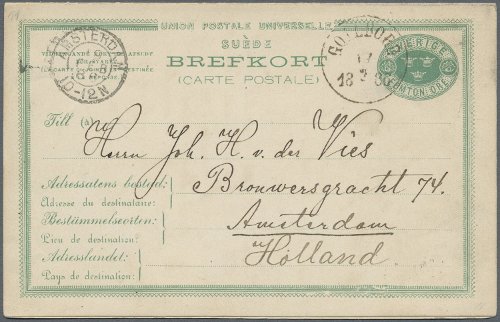 UNION POSTALE UNIVERSELLE
SUÈDE
BREFKORT
(CARTE POSTALE)
AMSTERDAM
10-12N
GÖTEBORG
17
18 3 86
SVERIGE
Till (à)
Herrn Joh. H. v. der Vies
Adressatens bostad:
Adresse du destinataire:
Brouwersgracht 74.
Bestämmelseorten:
Lieu de destination:
Amsterdam
Adresslandet:
Pays de destination:
Holland